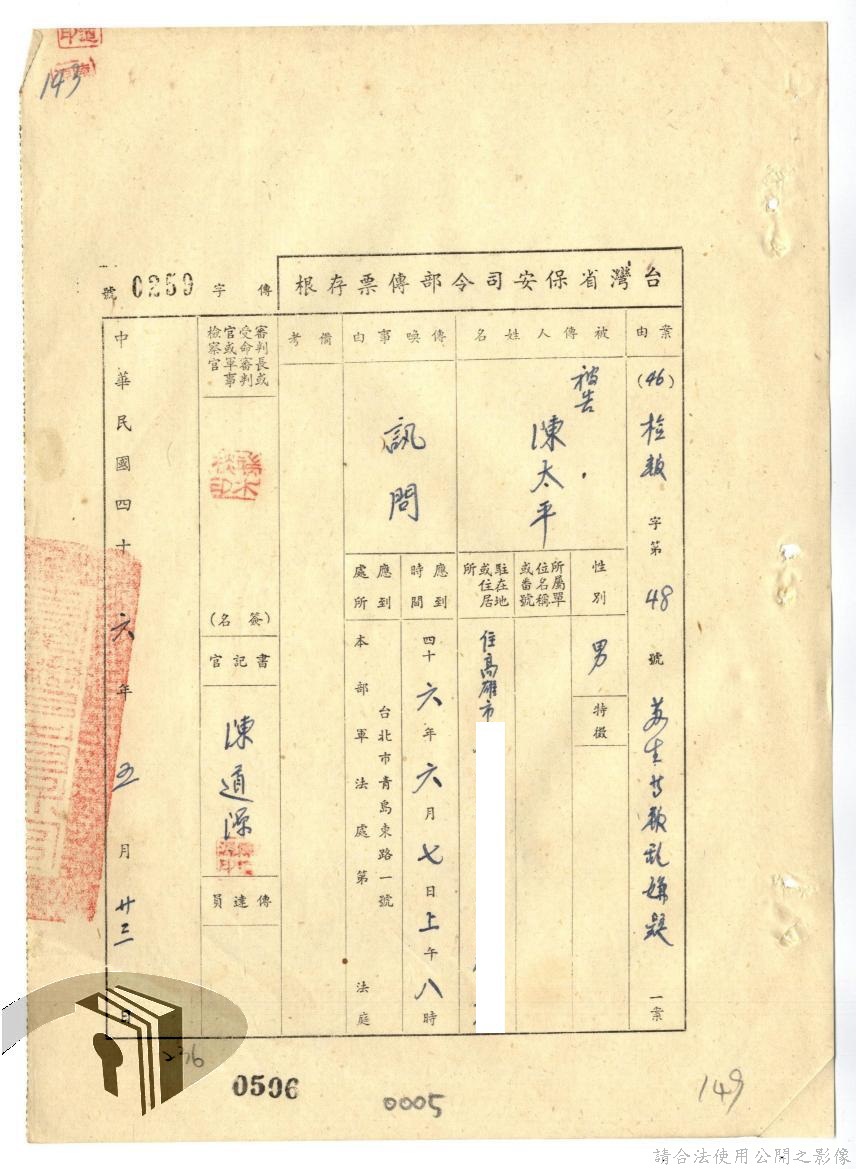 143
台灣省保安司令部傳票存根
傳字0259號
案由
(46)檢
字第
48
號
嫌疑
一案
被傳人姓名
被告
陳太平
性別
男
特徵
所屬單位名稱或番號
駐在地或住居所
住高雄市
傳喚事由
訊問
應到時間
四十六年六月七日上午八時
應到處所
台北市青島東路一號
本部軍法處第法庭
備考
審判長或受命審判官或軍事檢察官
(簽名)
書記官
陳道深
傳達員
中華民國四十六年五月廿三日
236
0506
0005
149
請合法使用公開之影像